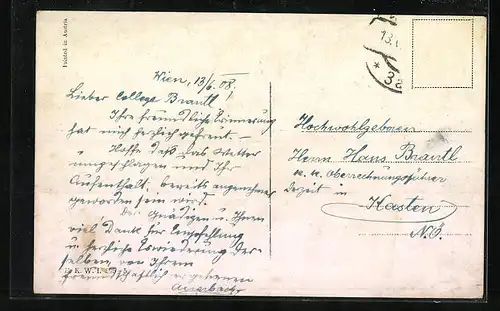 Printed in Austria
Wien, 13/6. 08.
Lieber College Brantl!
Ihre freundliche Erinnerung
hat mich herzlich gefreut. –
Hoffe daß das Wetter
umgeschlagen und Ihr
Aufenthalt, bereits angenehmer
geworden sein wird.
Der Gnädigen u. Ihnen
viel Dank für Empfehlung
u herzliche Erwiederung der-
selben, von Ihrem
freundschaftlich ergebenen
Auerbach
B. K. W. I.
13.
* 3a
Hochwohlgeboren
Herrn Hans Brantl
k. k. Oberrechnungsführer
Derzeit in
Kasten
N.Ö.